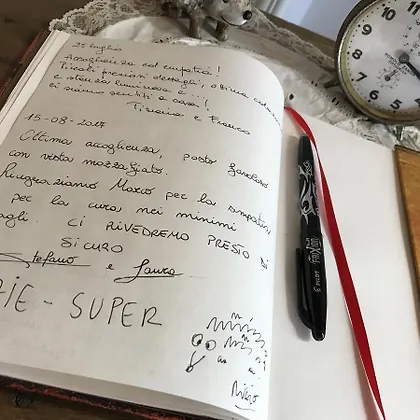 25 luglio
Accoglienza ed empatia!
Piccoli preziosi dettagli, ottima
e stanza luminosa e
ci siamo sentiti a casa!
Tiziana e Franco
15-08-2017
Ottima accoglienza, posto favoloso
con vista mozzafiato.
Ringraziamo Marco per la simpatia
e per la cura nei minimi
dettagli. CI RIVEDREMO PRESTO DI
SICURO
Stefano e Laura
ZIE - SUPER
Diego
PILOT
FRIXION
12
1
2
3
4
5
6
7
8
9
10
11